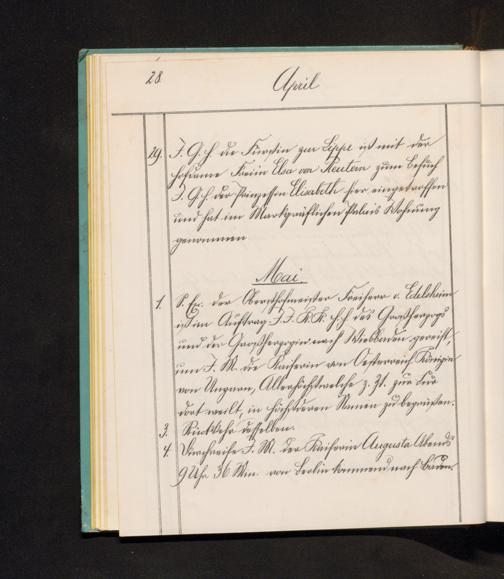 28
April
29. I. G. H. die Fürstin zur Lippe ist mit der
Hofdame Freiin Elsa von Reutern zum Besuch
I. G. H. der Prinzessin Elisabeth hier eingetroffen
und hat im Markgräflichen Palais Wohnung
genommen
Mai.
1. S. Ex. der Oberhofmeister Freiherr v. Edelsheim
ist im Auftrag I. I. K. K. H. H. des Großherzogs
und der Großherzogin nach Wiesbaden gereist,
um I. M. die Kaiserin von Oesterreich, Königin
von Ungarn, Allerhöchstwelche z. Zt. zur Kur
dort weilt, in Höchstderen Namen zu begrüßen.
3. Rückkehr desselben.
4. Durchreise I. M. der Kaiserin Augusta Abends
9 Uhr 36 Min. von Berlin kommend nach Baden.